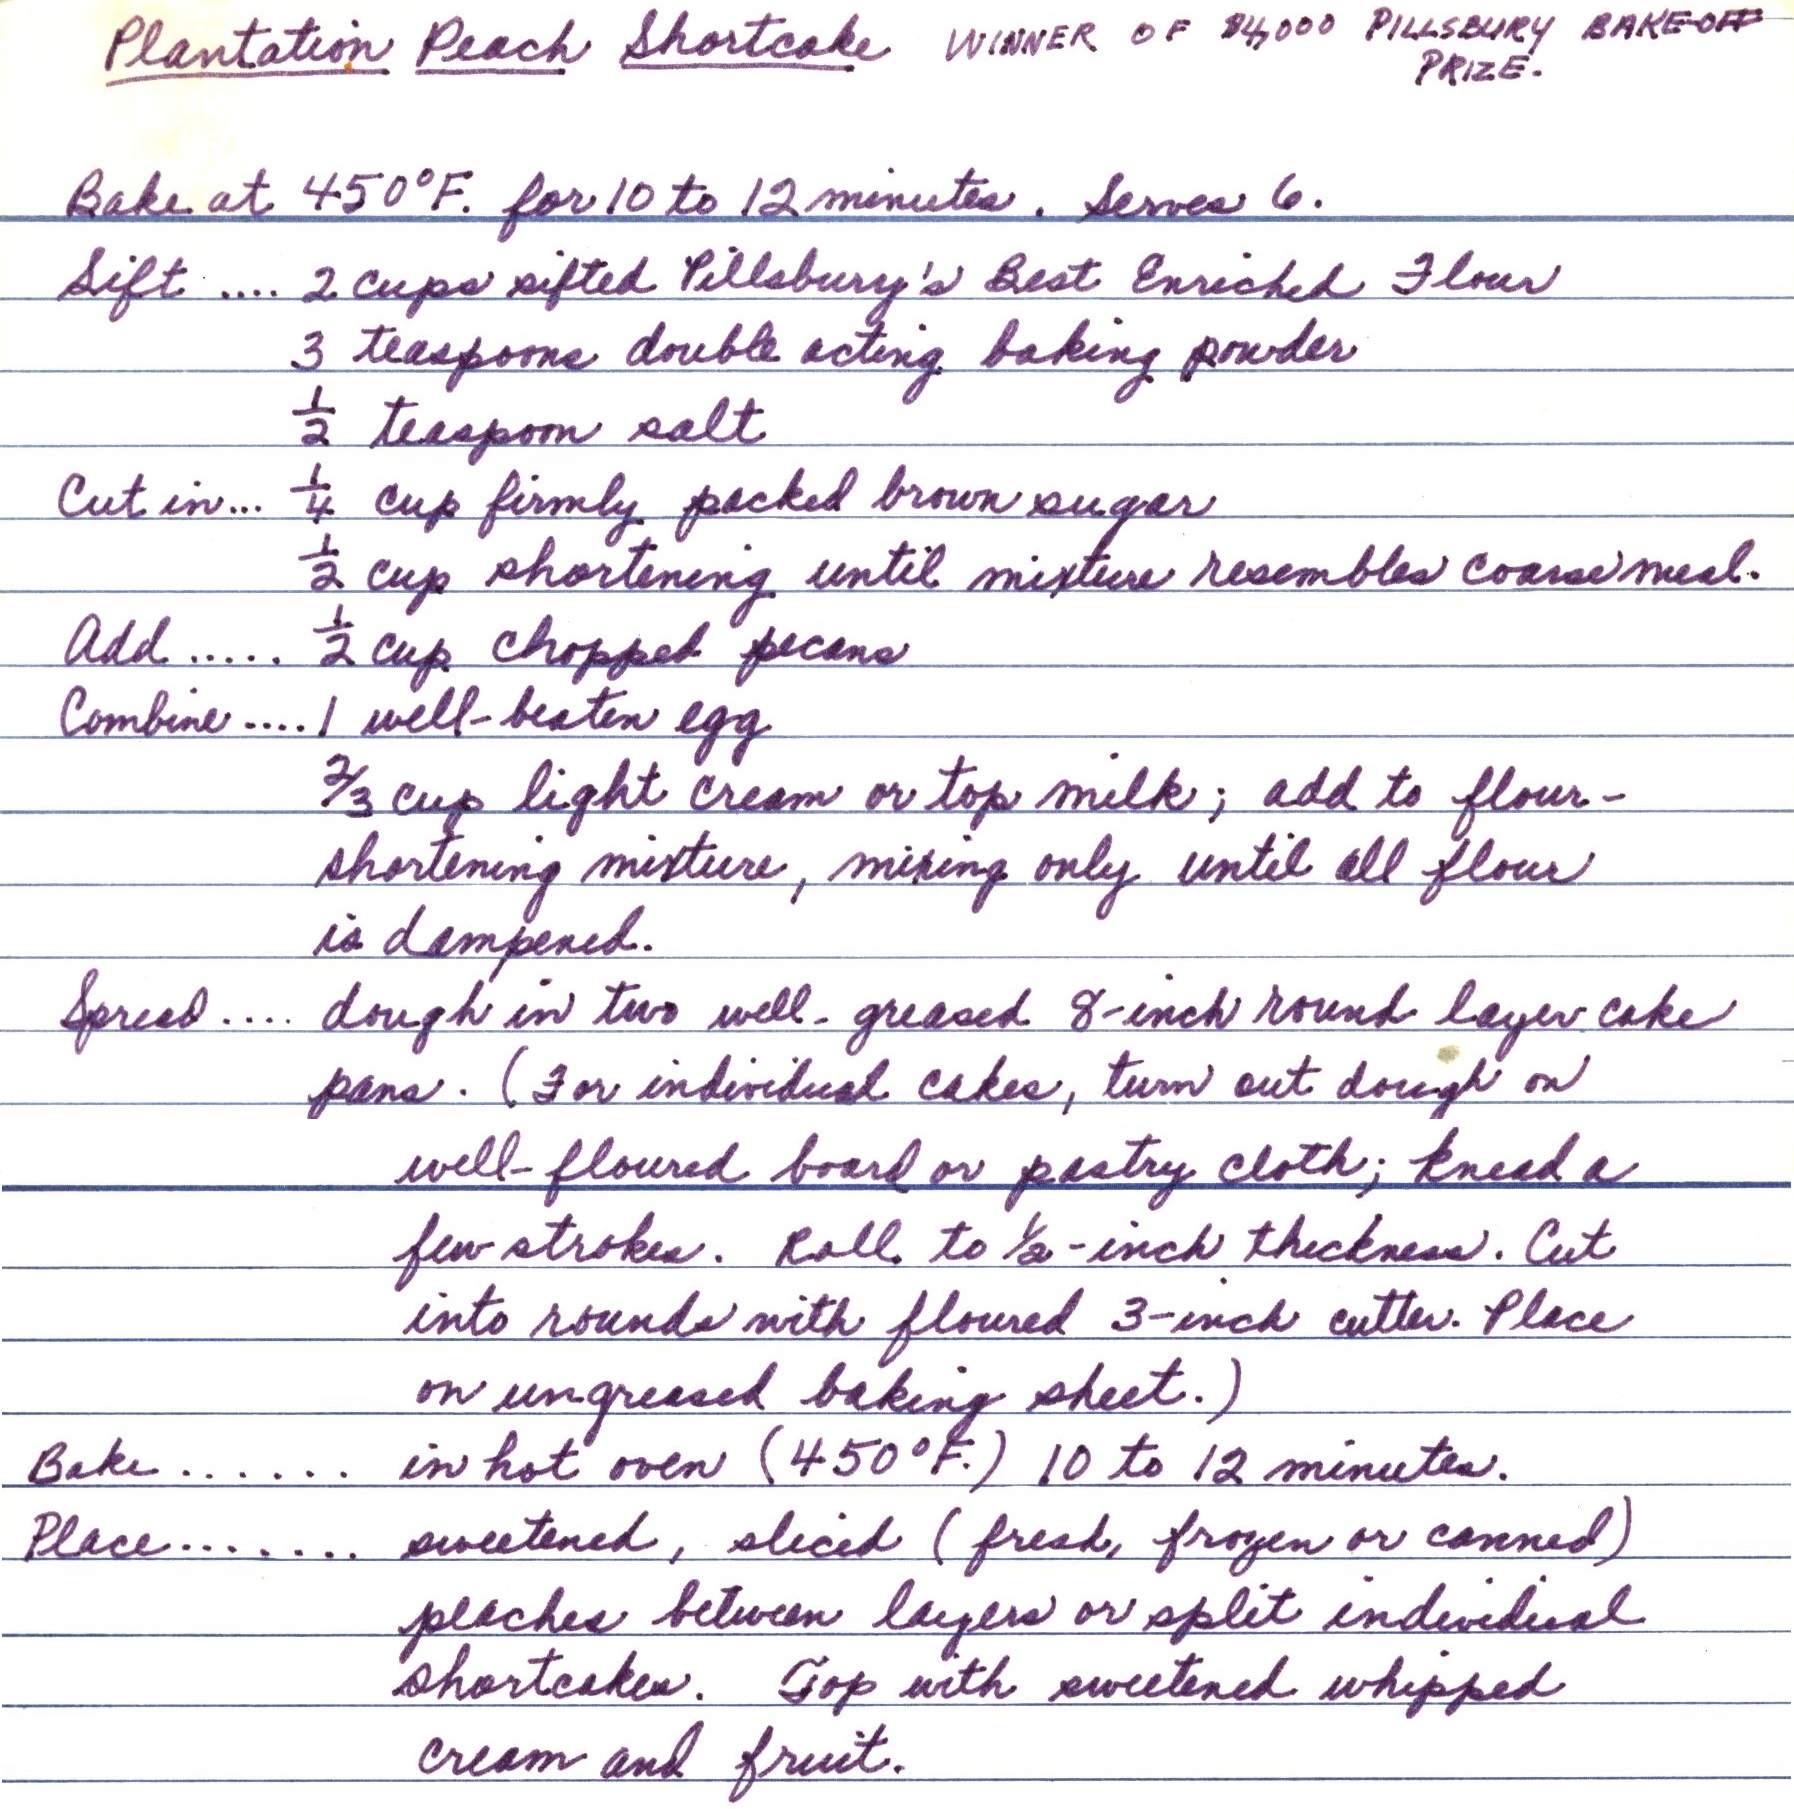 Plantation Peach Shortcake WINNER OF $4,000 PILLSBURY BAKE-OFF
PRIZE.
Bake at 450°F. for 10 to 12 minutes. Serves 6.
Sift .... 2 cups sifted Pillsbury's Best Enriched Flour
3 teaspoons double acting baking powder
1/2 teaspoon salt
Cut in... 1/4 cup firmly packed brown sugar
1/2 cup shortening until mixture resembles coarse meal.
Add ..... 1/2 cup chopped pecans
Combine .... 1 well-beaten egg
2/3 cup light cream or top milk; add to flour-
shortening mixture, mixing only until all flour
is dampened.
Spread .... dough in two well-greased 8-inch round layer cake
pans. (For individual cakes, turn out dough on
well-floured board or pastry cloth; knead a
few strokes. Roll to 1/2-inch thickness. Cut
into rounds with floured 3-inch cutter. Place
on ungreased baking sheet.)
Bake ...... in hot oven (450°F.) 10 to 12 minutes.
Place ....... sweetened, sliced (fresh, frozen or canned)
peaches between layers or split individual
shortcakes. Top with sweetened whipped
cream and fruit.